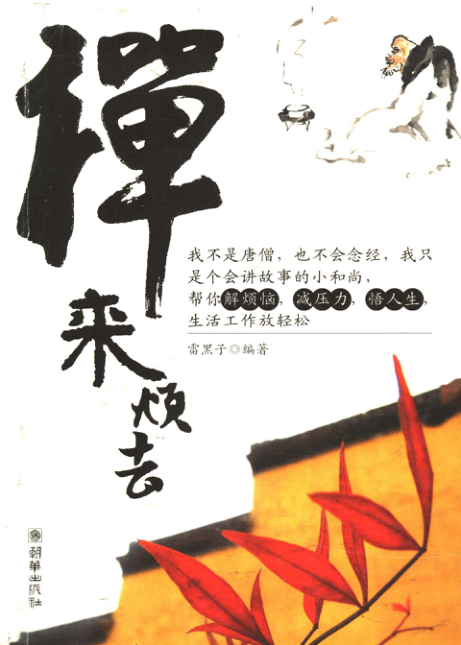 禪
来
烦
去
我不是唐僧，也不会念经，我只
是个会讲故事的小和尚，
帮你解烦恼，减压力，悟人生，
生活工作放轻松
雷黑子◎编著
朝華出版社